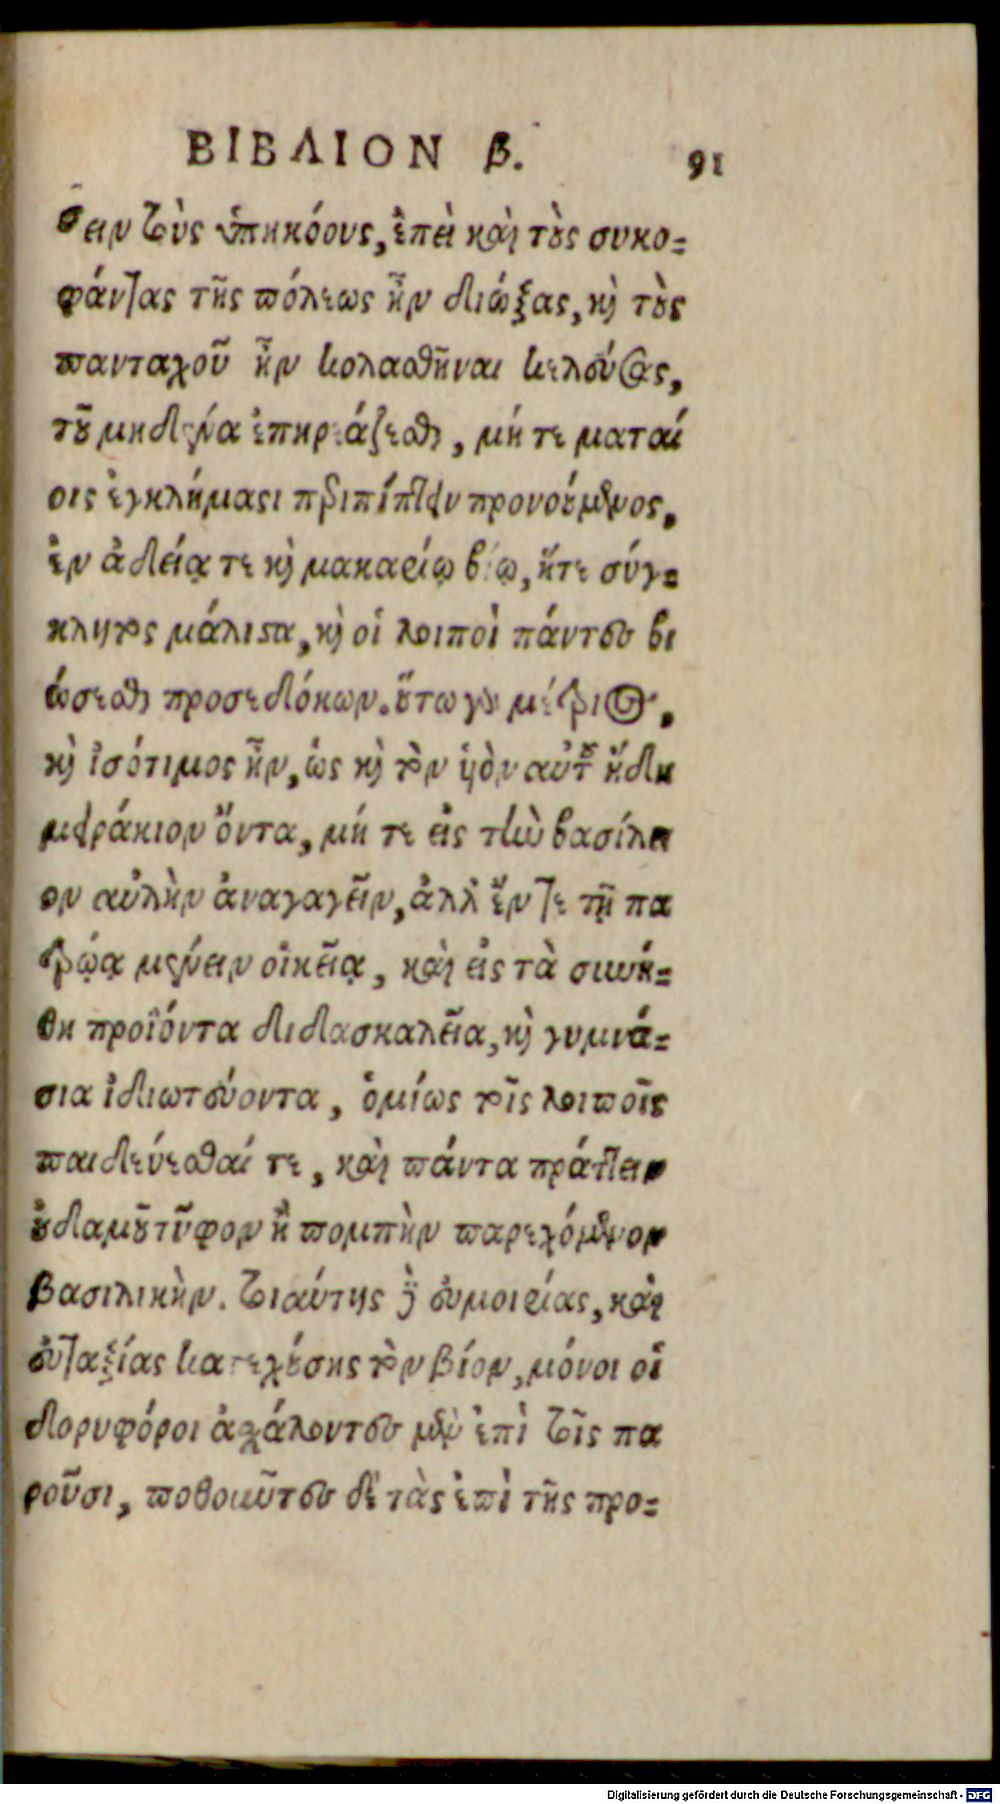 ΒΙΒΛΙΟΝ β. 91
σειν τοὺς ὑπηκόους, ἐπεὶ καὶ τοὺς συκο-
φάντας τῆς πόλεως ἦν διώξας, καὶ τοὺς
πανταχοῦ ἦν κολασθῆναι κελεύσας,
τοῦ μηδένα ἐπηρεάζεσθαι, μήτε ματαί
οις ἐγκλήμασι περιπίπτειν προνούμενος.
ἐν ἀδείᾳ τε καὶ μακαρίῳ βίῳ, ἥτε σύγ-
κλητος μάλιστα, καὶ οἱ λοιποὶ πάντες βι
ώσεσθαι προσεδόκων. οὕτω γὰρ μέτριος.
καὶ ἰσότιμος ἦν, ὡς καὶ τὸν ὑὸν αὐτοῦ ἤδη
μειράκιον ὄντα, μή τε εἰς τὴν βασίλει
ον αὐλὴν ἀναγαγεῖν, ἀλλ' ἔν τε τῇ πα
τρῴᾳ μένειν οἰκείᾳ, καὶ εἰς τὰ συνή-
θη προϊόντα διδασκαλεῖα, καὶ γυμνά-
σια ἰδιωτεύοντα, ὁμίως τοῖς λοιποῖς
παιδεύεσθαί τε, καὶ πάντα πράττειν
οὐδαμοῦ τῦφον ἢ πομπὴν παρεχόμενον
βασιλικὴν. τοιαύτης δὲ εὐμοιρίας, καὶ
εὐταξίας κατεχούσης τὸν βίον, μόνοι οἱ
δορυφόροι ἀσχάλοντες μὲν ἐπὶ τοῖς πα
ροῦσι, ποθοῦντες δὲ τὰς ἐπὶ τῆς προ-
Digitalisierung gefördert durch die Deutsche Forschungsgemeinschaft - DFG